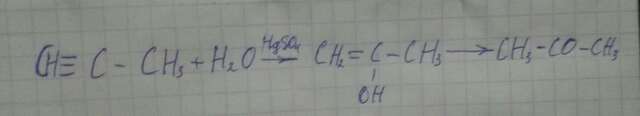 CH≡C-CH₃+H₂O HgSO₄→ CH₂=C-CH₃→CH₃-CO-CH₃
OH